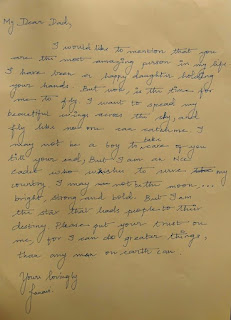 My Dear Dad,
I would like to mention that you
are the most amazing person in my life
I have been a happy daughter holding
your hands. But now, is the time for
me to fly. I want to spread my
beautiful wings across the sky, and
fly like no one can
may not be a boy to take care of you
till your end, But I am an NCC
cadet who wishes to serve my
country. I may not be the moon...
bright, strong and bold. But I am
the star that leads people to their
destiny. Please put your trust on
me, for I can do greater things,
than any man on earth can.
Yours lovingly